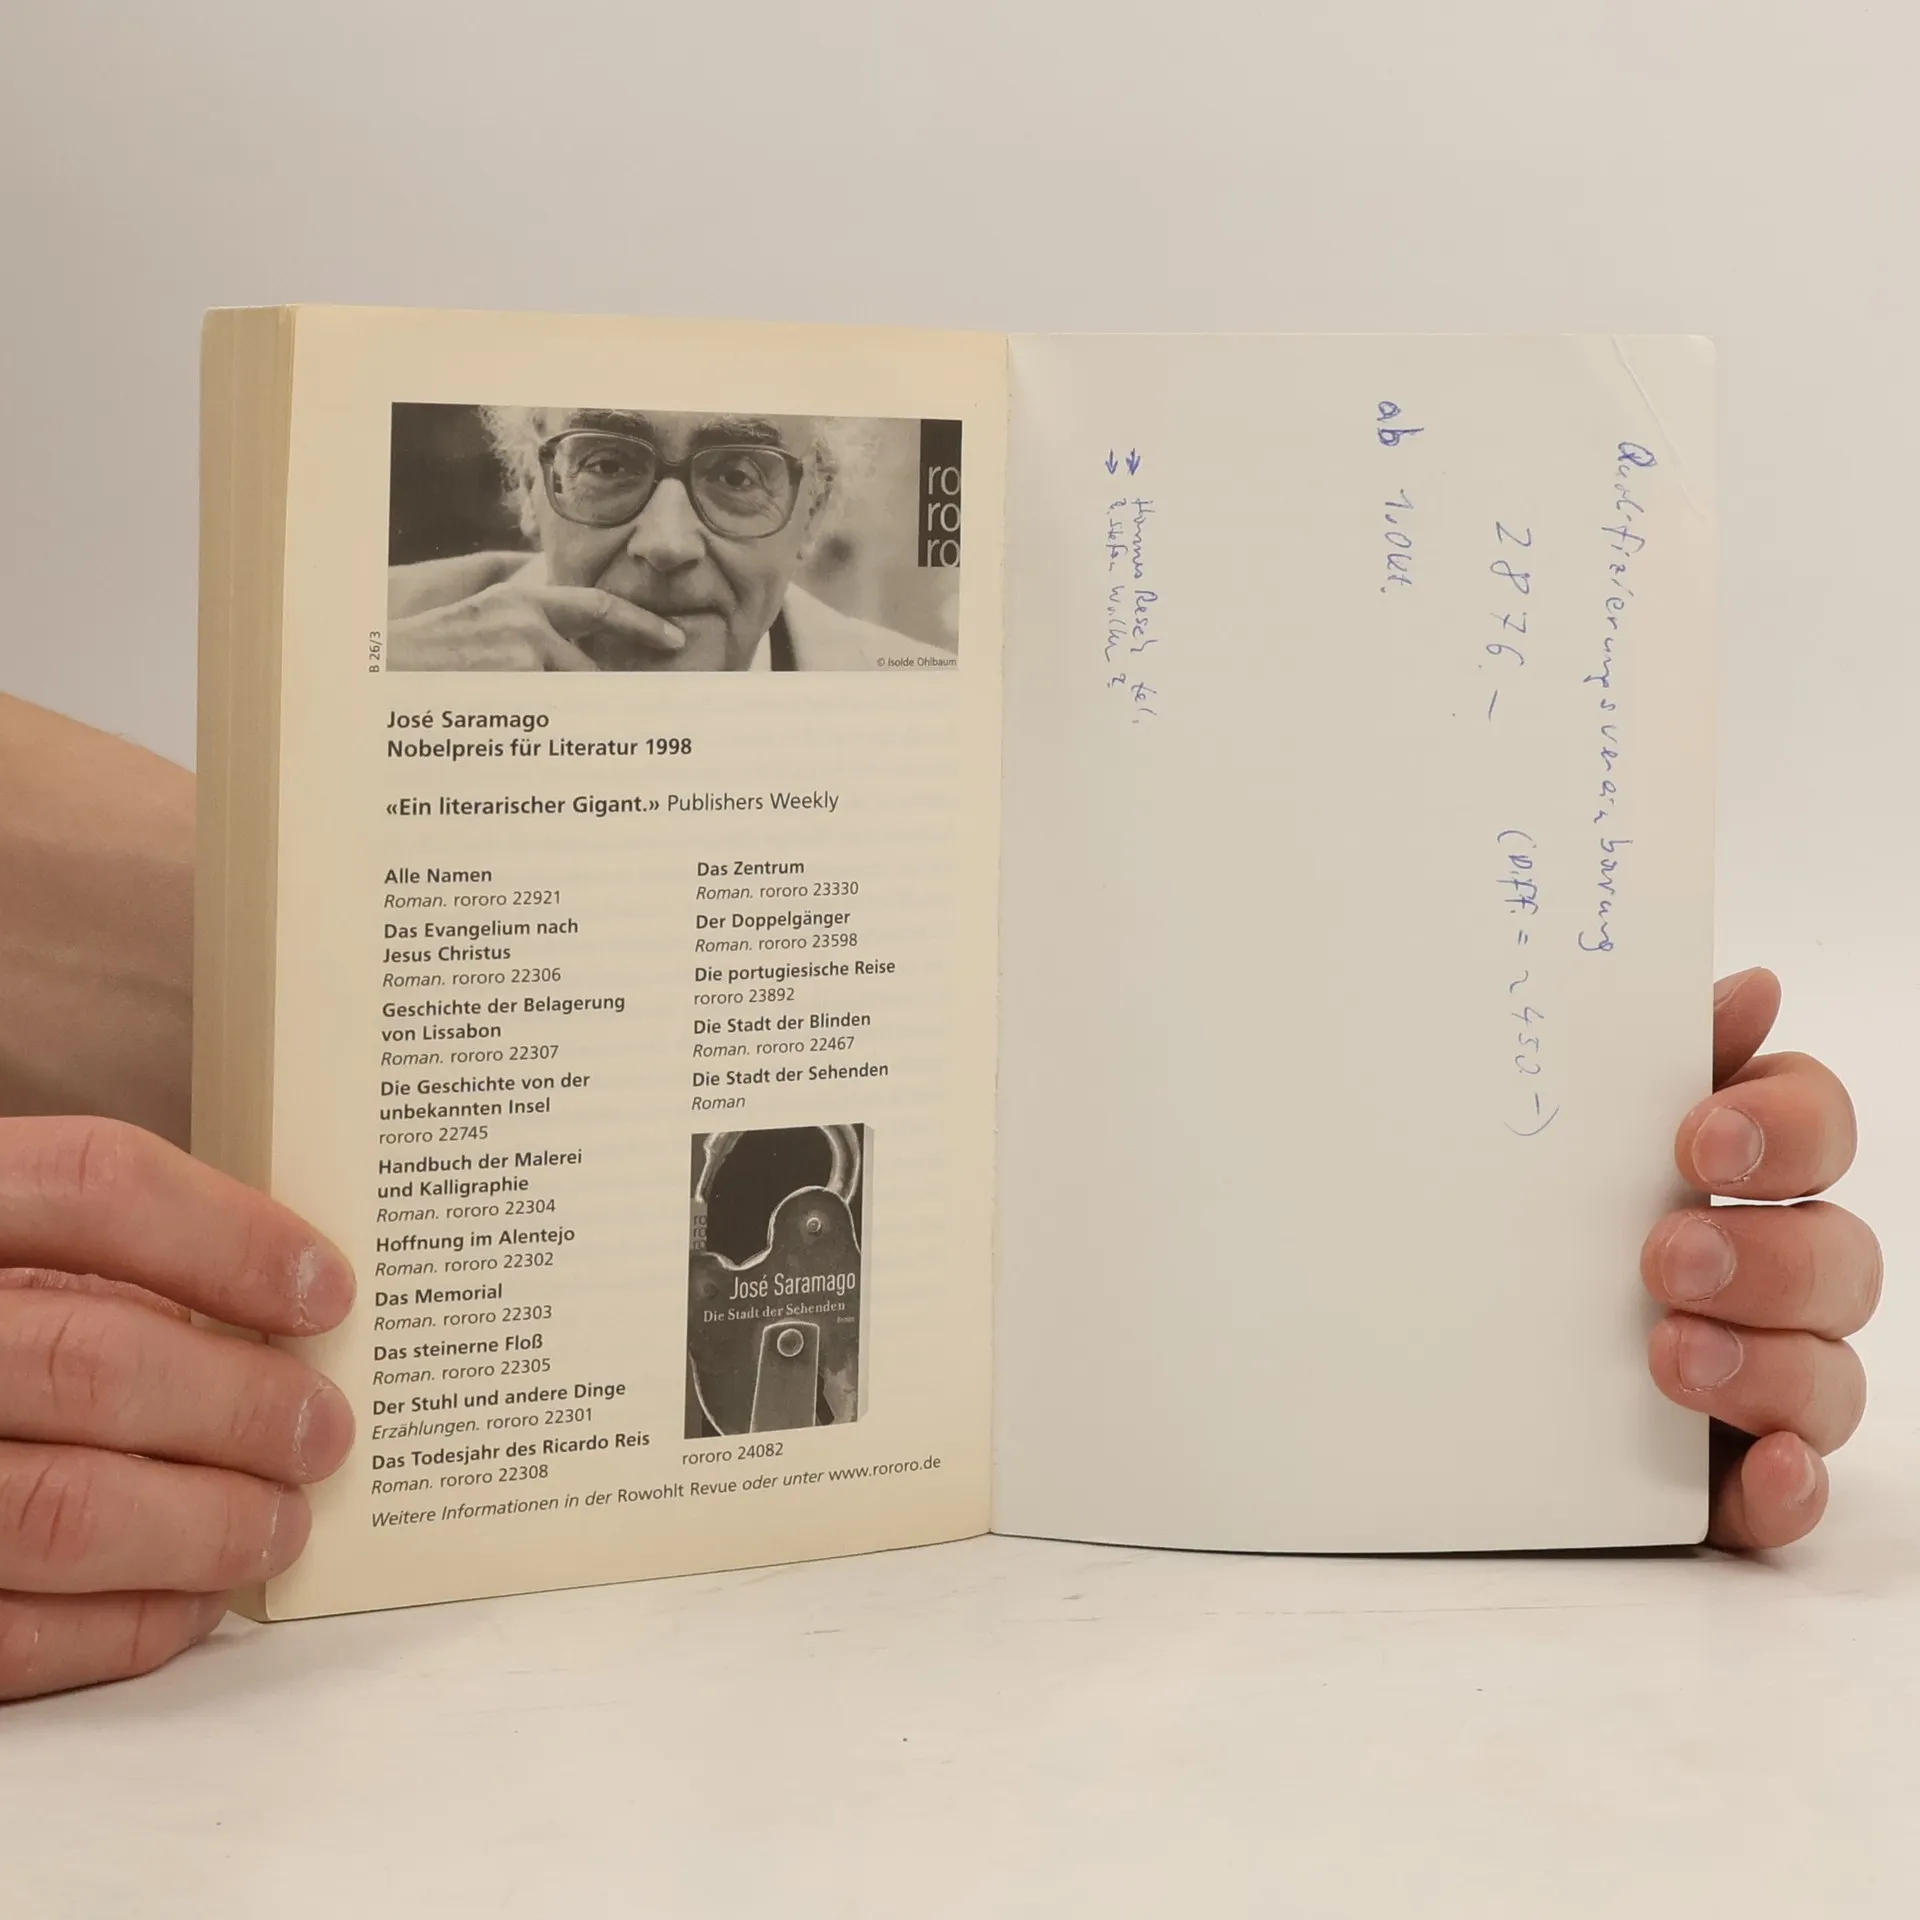 ro
ro
ro
© Isolde Ohlbaum
B 26/3
José Saramago
Nobelpreis für Literatur 1998
«Ein literarischer Gigant.» Publishers Weekly
Alle Namen
Roman. rororo 22921
Das Evangelium nach
Jesus Christus
Roman. rororo 22306
Geschichte der Belagerung
von Lissabon
Roman. rororo 22307
Die Geschichte von der
unbekannten Insel
rororo 22745
Handbuch der Malerei
und Kalligraphie
Roman. rororo 22304
Hoffnung im Alentejo
Roman. rororo 22302
Das Memorial
Roman. rororo 22303
Das steinerne Floß
Roman. rororo 22305
Der Stuhl und andere Dinge
Erzählungen. rororo 22301
Das Todesjahr des Ricardo Reis
Roman. rororo 22308
Das Zentrum
Roman. rororo 23330
Der Doppelgänger
Roman. rororo 23598
Die portugiesische Reise
rororo 23892
Die Stadt der Blinden
Roman. rororo 22467
Die Stadt der Sehenden
Roman
José Saramago
Die Stadt der Sehenden
Roman
rororo 24082
Weitere Informationen in der Rowohlt Revue oder unter www.rororo.de
Qualifizierungsvereinbarung
2876.– (Diff. = 2450–)
ab 1. Okt.
tel.